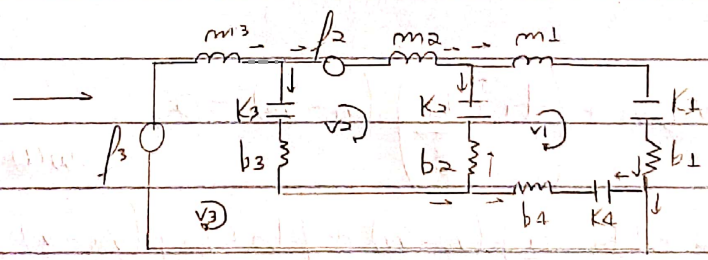 m3 f2 m2 m1
K3 K2 K1
v2 v1
f3 b3 b2 b1
v3 b4 K4